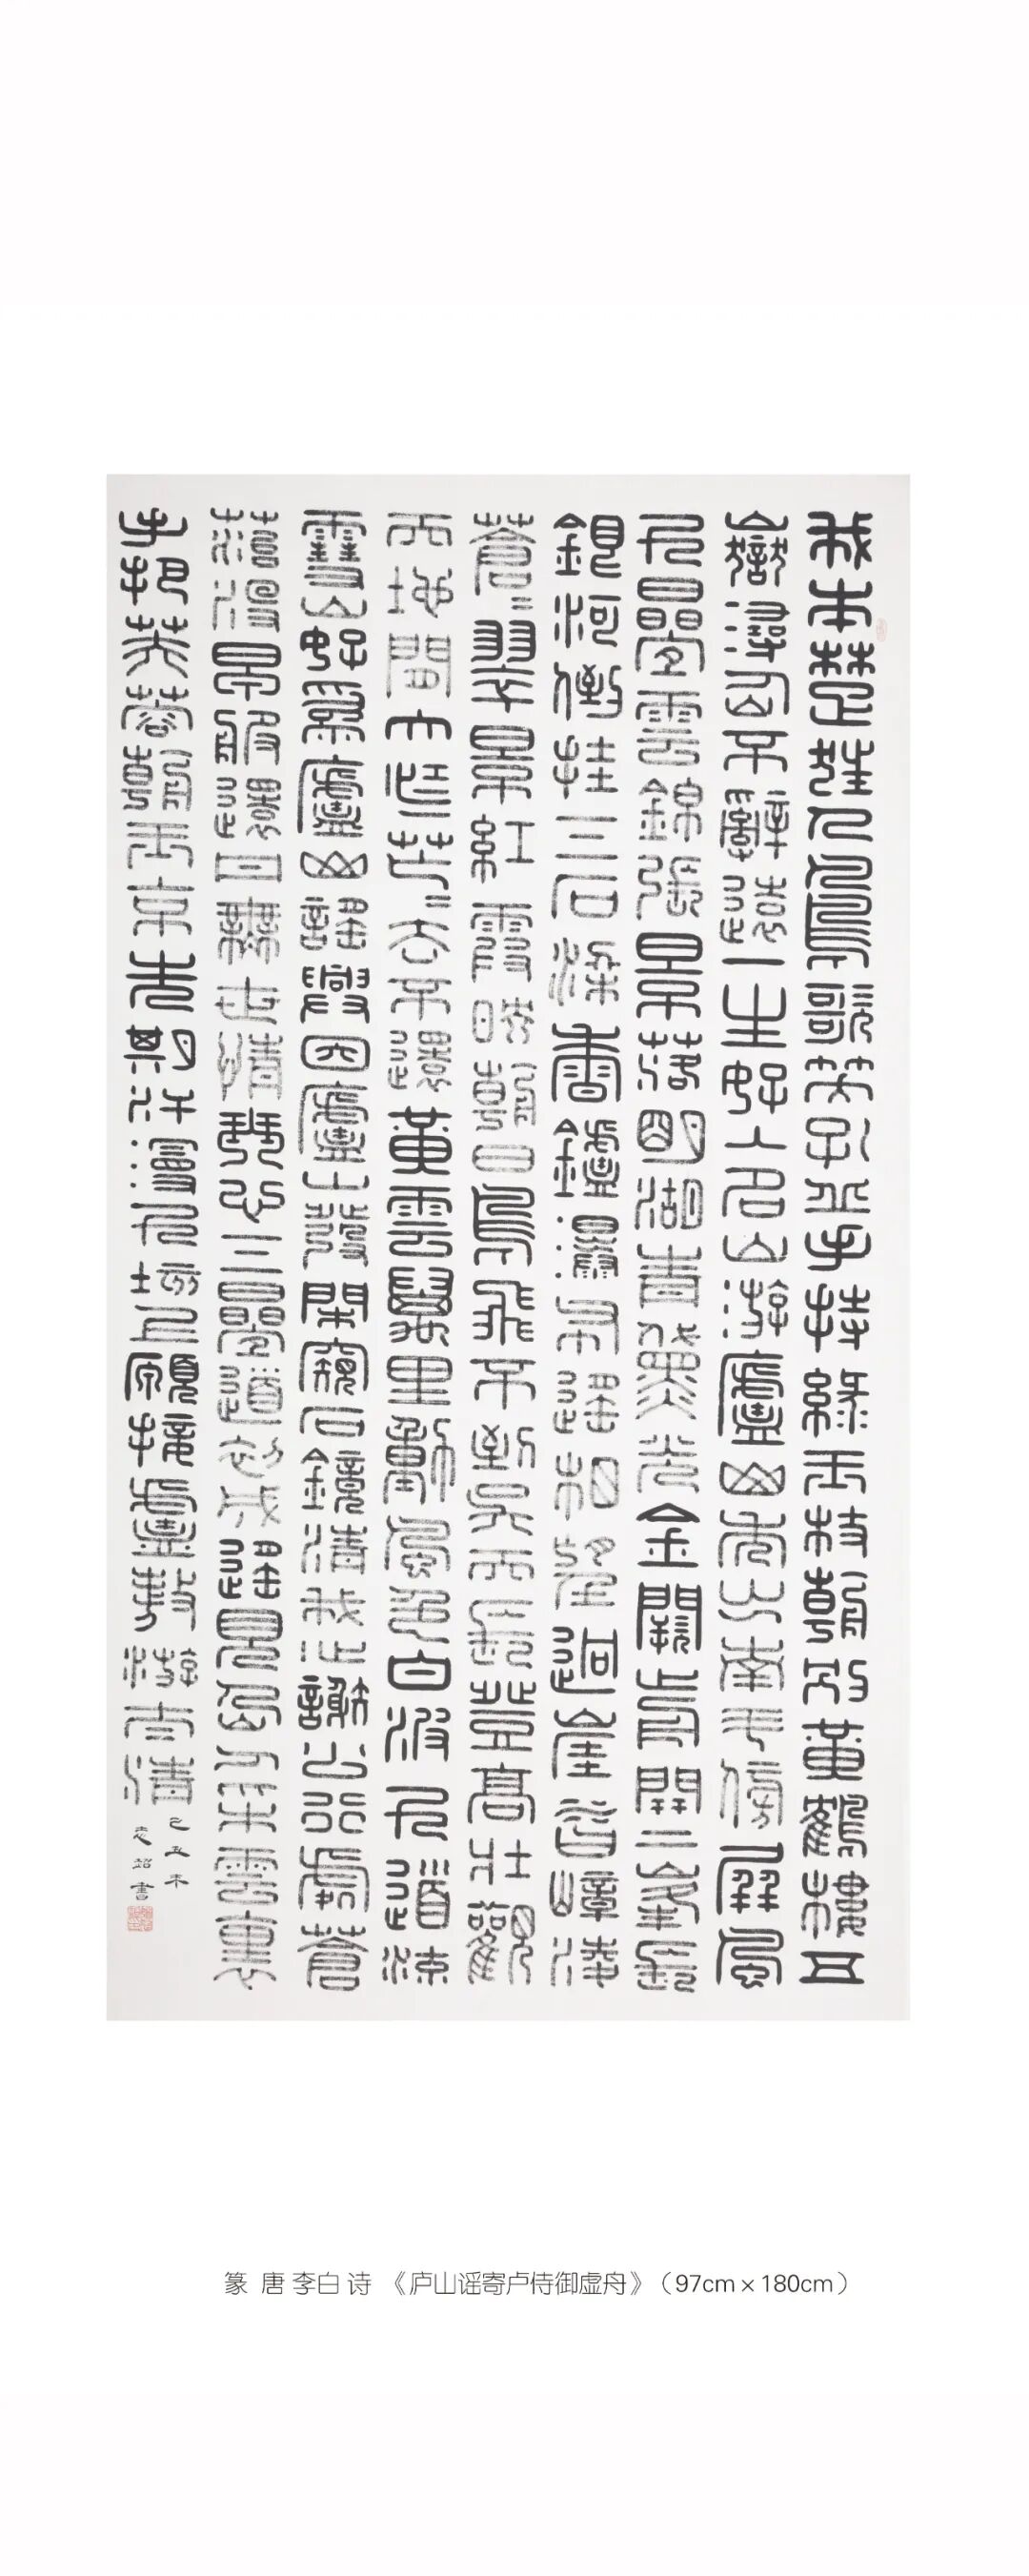 我本楚狂人鳳歌笑孔丘手持綠玉杖朝別黃鶴樓五
嶽尋仙不辭遠一生好入名山游廬山秀出南斗傍屏風
九疊雲錦張景落明湖青黛光金闕前開二峯長
銀河倒挂三石梁香鑪瀑布遙相望迴崖沓嶂凌
蒼〻翠景紅霞映朝日鳥飛不到吳天長登高壯觀
天地間大江茫〻去不還黃雲萬里動風色白波九道流
雪山好為廬山謠興因廬山發閑窺石鏡清我心謝公行處蒼
苔沒早服還丹無世情琴心三疊道初成遙見仙人采雲裏
手把芙蓉朝玉京先期汗漫九垓上願接盧敖游太清
己丑
書
篆 唐 李白 诗 《庐山谣寄卢侍御虚舟》（97cm×180cm）